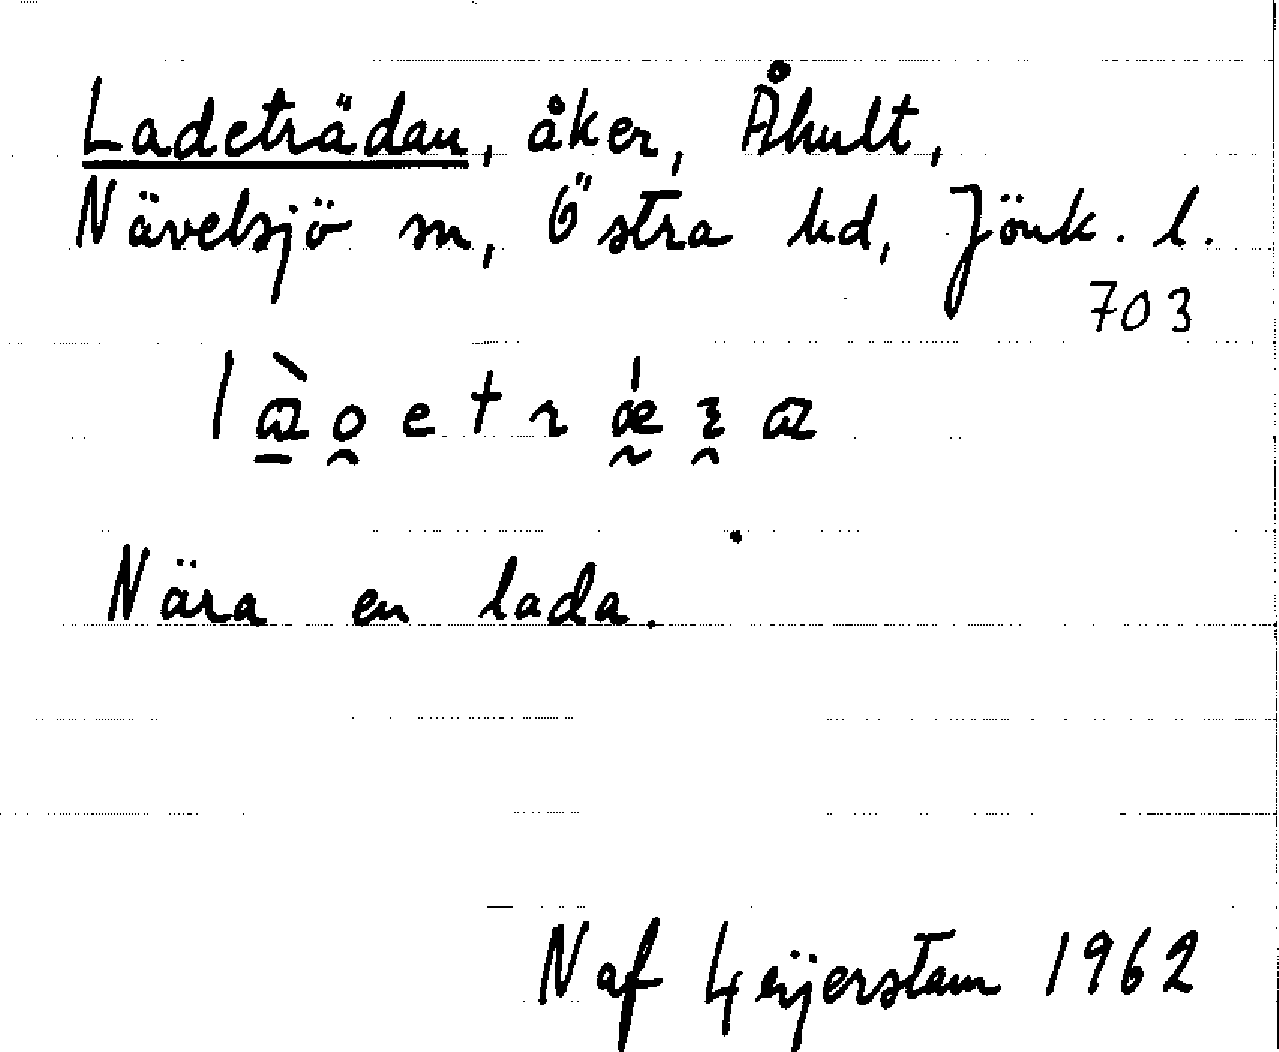 Ladeträdan, åker, Åhult,
Nävelsjö sn, Östra hd, Jönk. l.
703
Nära en lada.
N af Geijerstam 1962